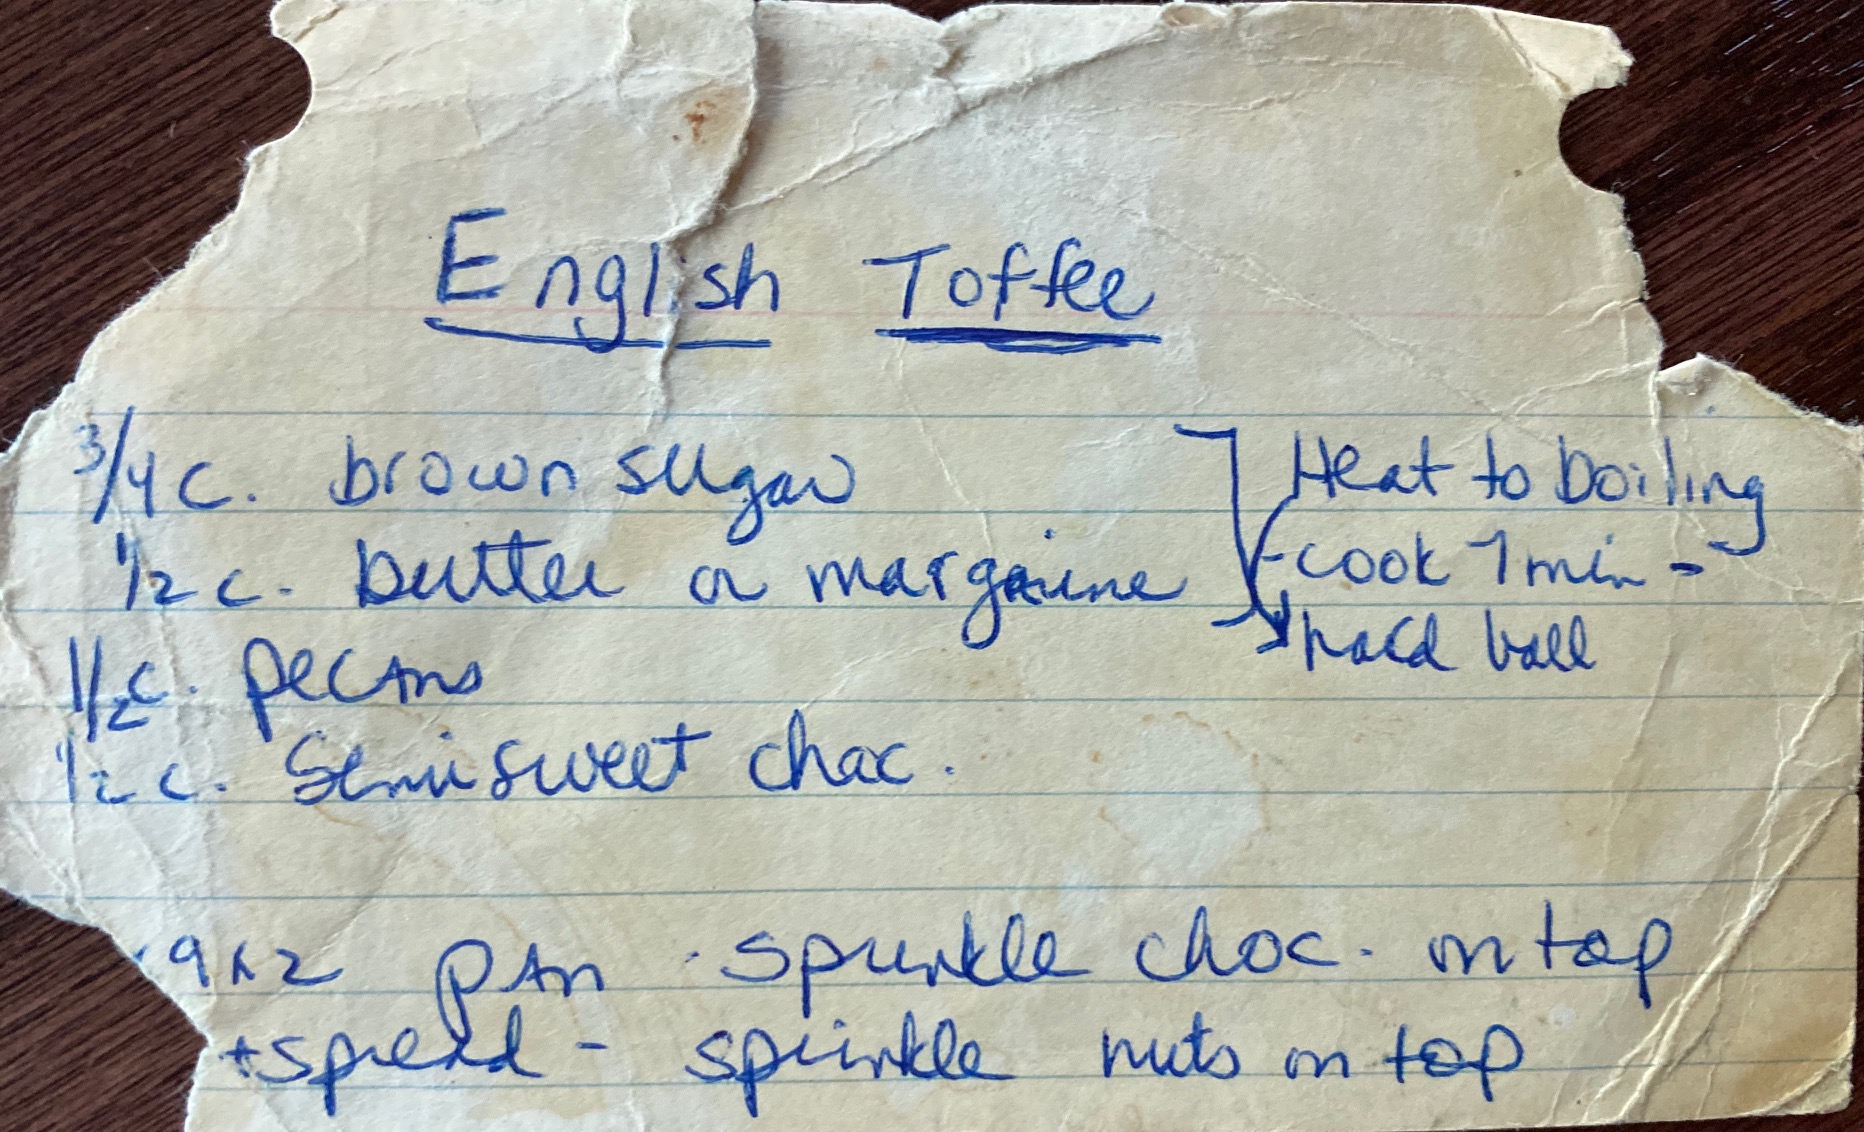 English Toffee
3/4 c. brown sugar
1/2 c. butter or margarine
Heat to boiling
- cook 7 min -
hard ball
1/2 c. pecans
1/2 c. Semisweet choc.
9x2 pan . sprinkle choc. on top
+ spread - sprinkle nuts on top